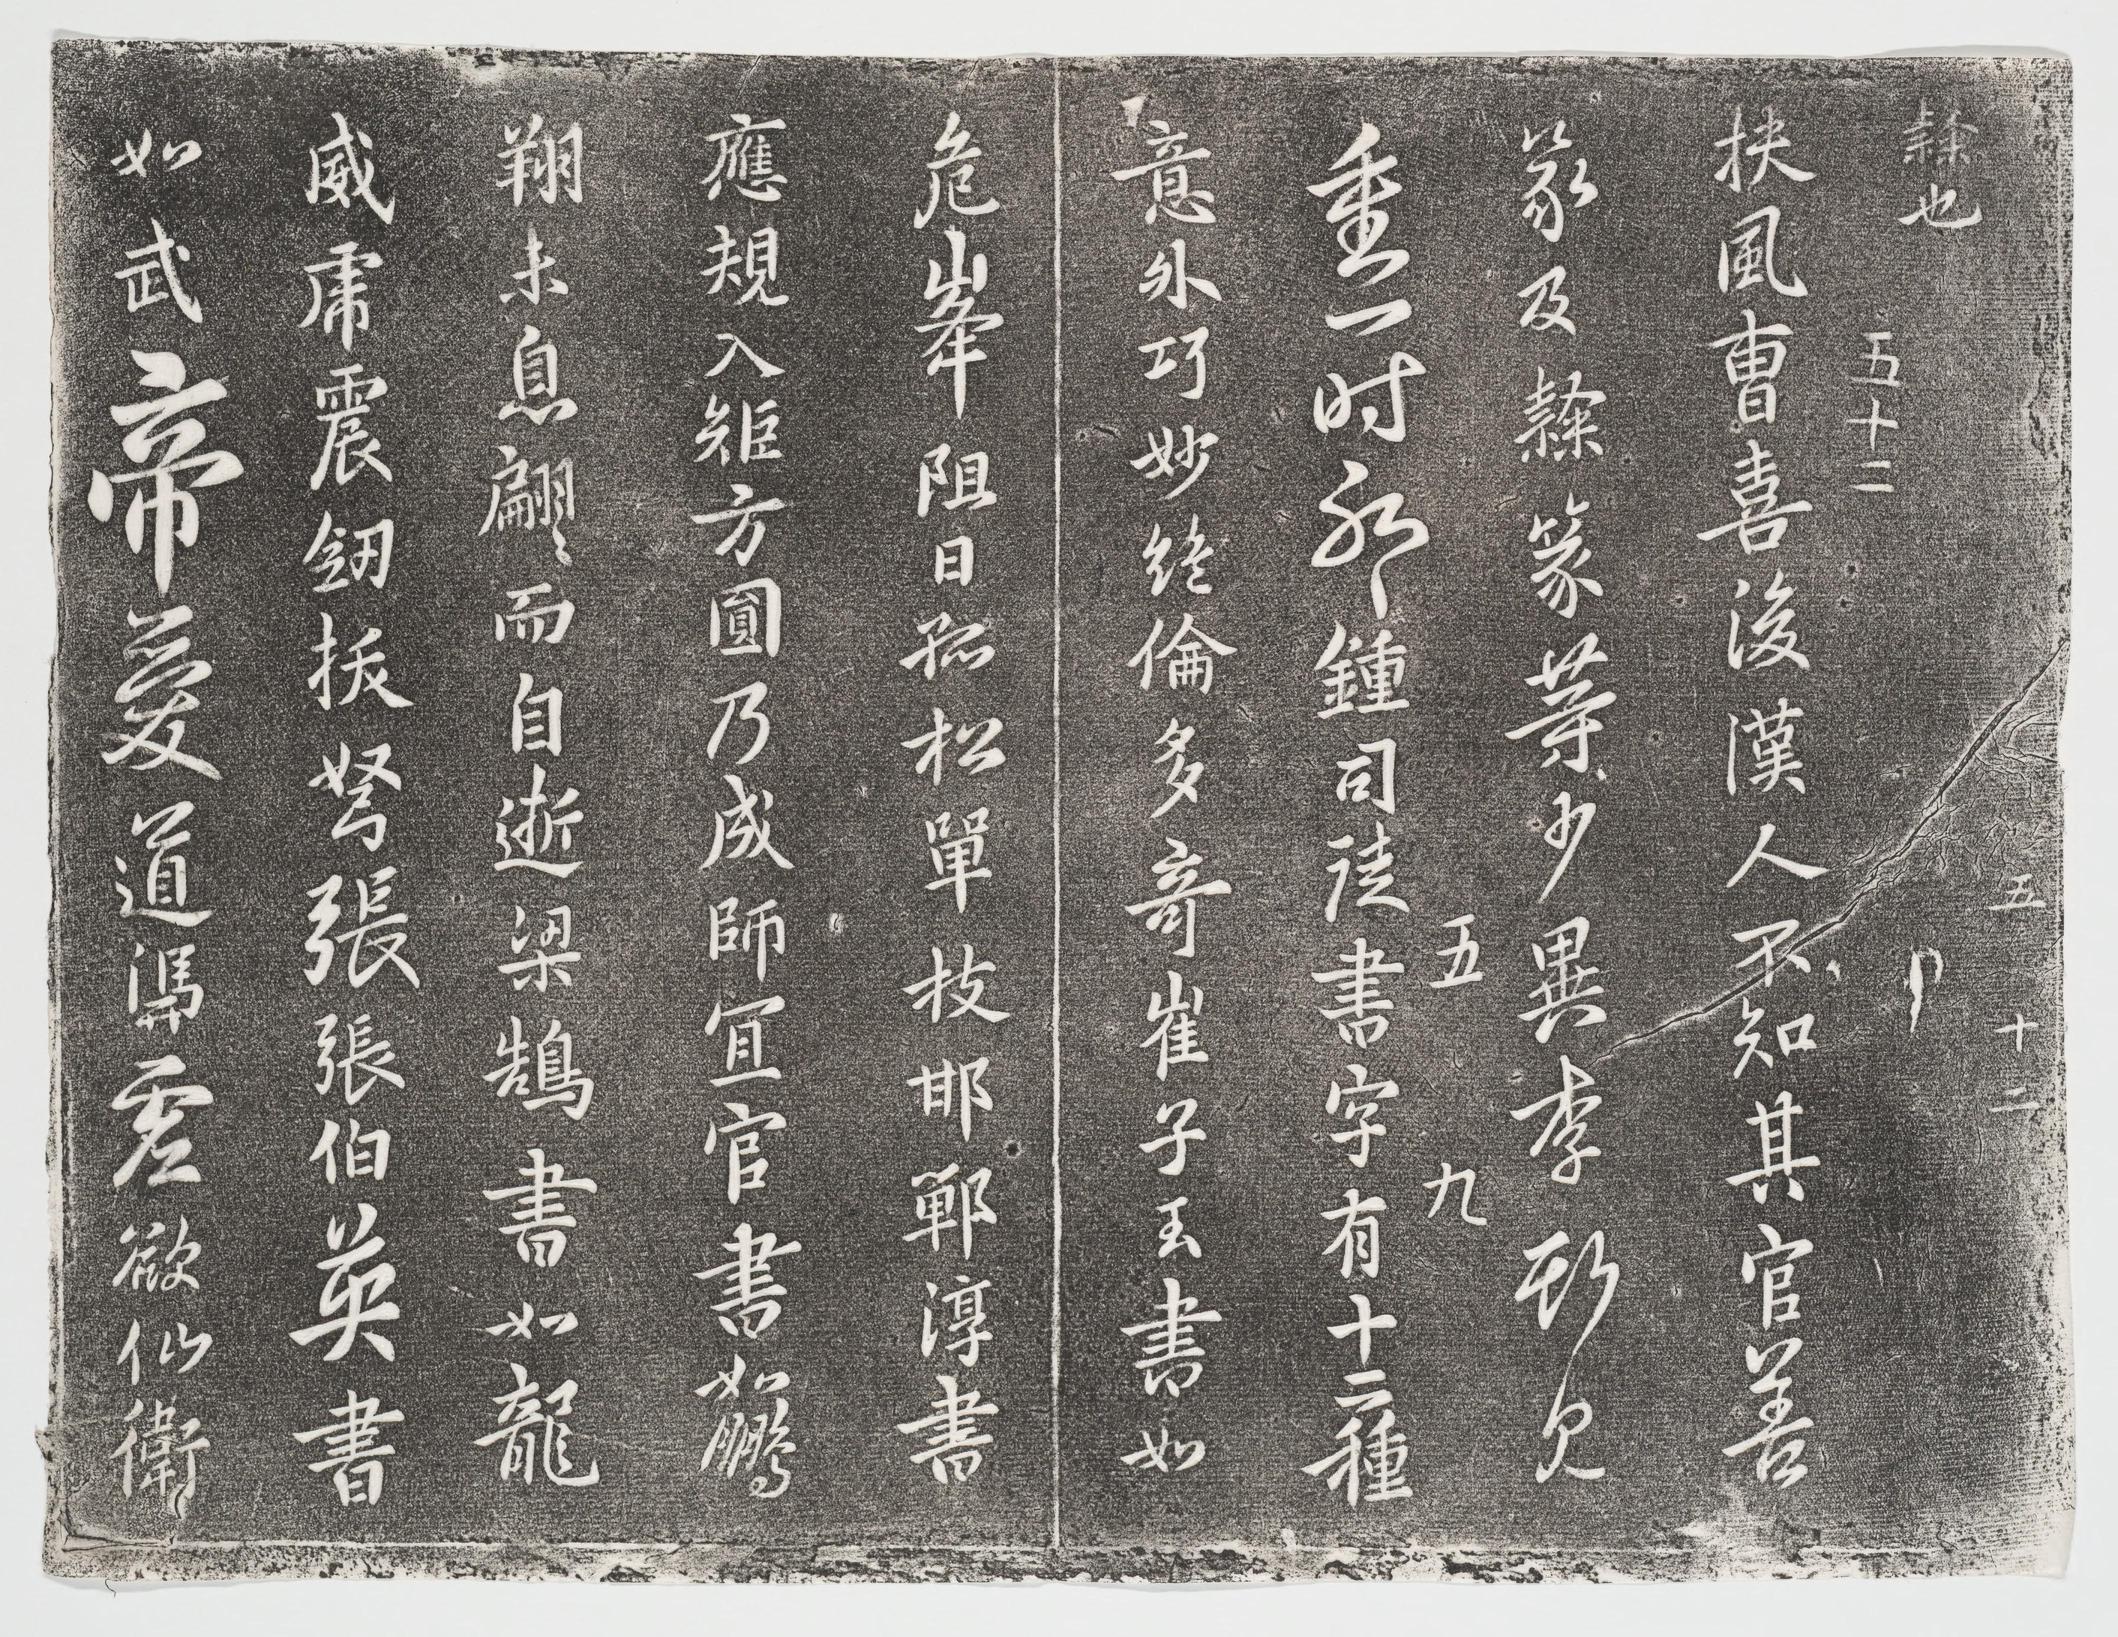 隸也
五十二
五十二
扶風曹喜後漢人不知其官善
篆及隸篆等少異李斯見
五九
重一时永鍾司徒書字有十二種
意外巧妙絶倫多奇崔子玉書如
危峯阻日孤松單枝邯鄲淳書
應規入矩方圓乃成師宜官書如鵬
翔未息翩〻而自逝梁鵠書如龍
威虎震劒拔弩張張伯英書
如武帝愛道馮虛欲仙衛